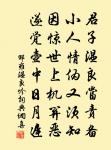 君子溫良當責備
小人情偽又須知
因驚世上機關惡
遂覺壺中日月遲
邵雍溫良吟詞典網